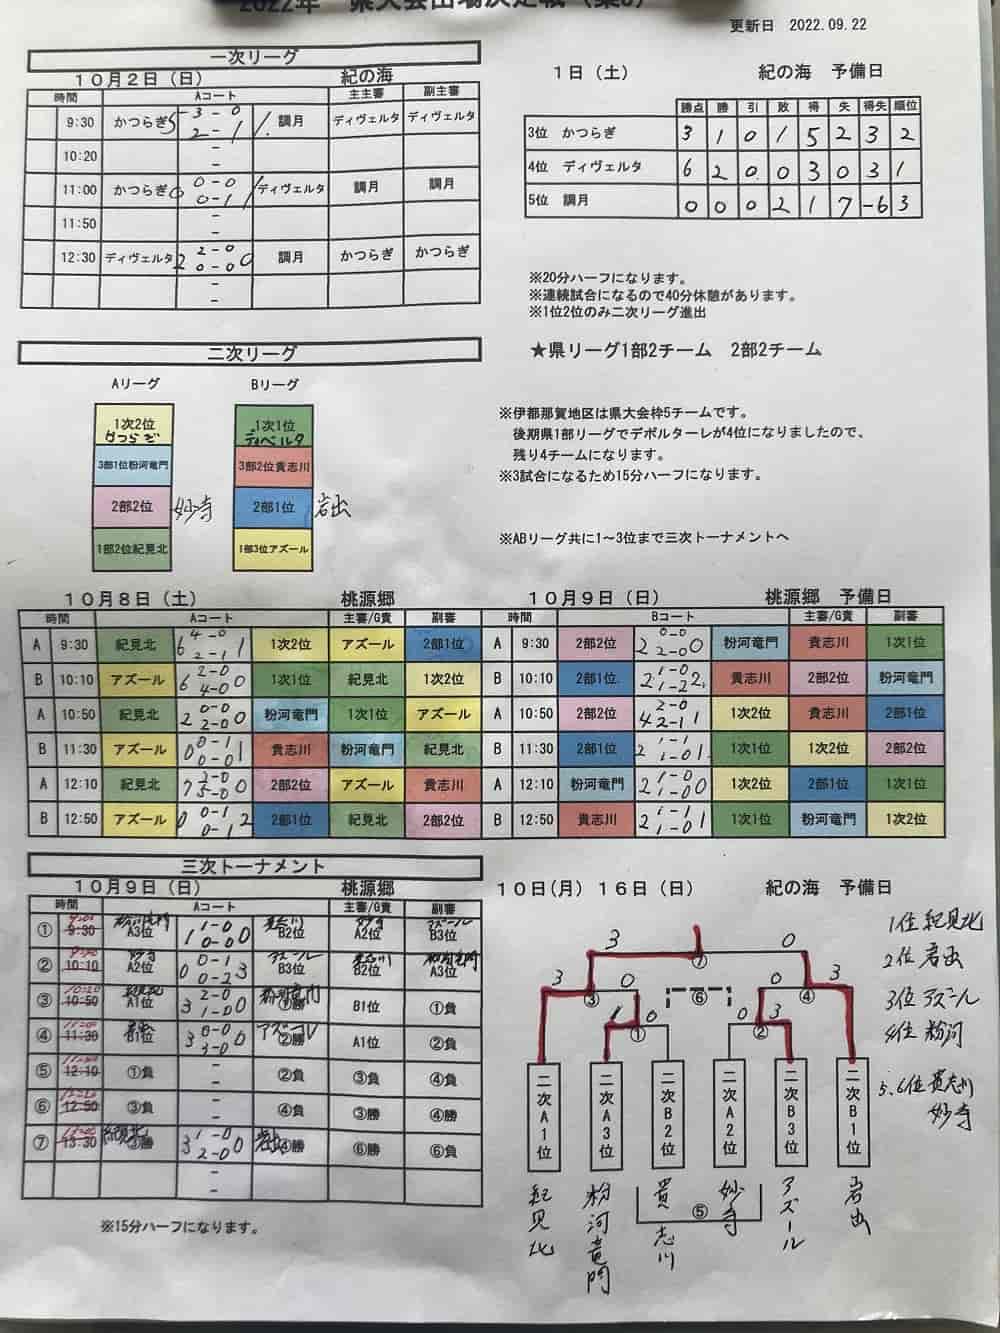 2022年 県大会出場決定戦
更新日 2022.09.22
一次リーグ
10月2日（日） 紀の海
1日（土） 紀の海 予備日
時間 Aコート 主主審 副主審
9:30 かつらぎ 5 3-0 2-1 1 調月 ディヴェルタ ディヴェルタ
10:20 - -
11:00 かつらぎ 0 0-0 0-1 1 ディヴェルタ 調月 調月
11:50 - -
12:30 ディヴェルタ 2 2-0 0-0 0 調月 かつらぎ かつらぎ
- -
勝点 勝 引 敗 得 失 得失 順位
3位 かつらぎ 3 1 0 1 5 2 3 2
4位 ディヴェルタ 6 2 0 0 3 0 3 1
5位 調月 0 0 0 2 1 7 -6 3
※20分ハーフになります。
※連続試合になるので40分休憩があります。
※1位2位のみ二次リーグ進出
★県リーグ1部2チーム 2部2チーム
二次リーグ
Aリーグ Bリーグ
1次2位 かつらぎ 1次1位 ディベルタ
3部1位粉河竜門 3部2位貴志川
2部2位 妙寺 2部1位 岩出
1部2位紀見北 1部3位アズール
※伊都那賀地区は県大会枠5チームです。
後期県1部リーグでデポルターレが4位になりましたので、
残り4チームになります。
※3試合になるため15分ハーフになります。
※ABリーグ共に1～3位まで三次トーナメントへ
10月8日（土） 桃源郷 10月9日（日） 桃源郷 予備日
時間 Aコート 主審/G責 副審 時間 Bコート 主審/G責 副審
A 9:30 紀見北 6 4-0 2-1 1 1次2位 アズール 2部1位 A 9:30 2部2位 2 0-0 2-0 0 粉河竜門 貴志川 1次1位
B 10:10 アズール 6 2-0 4-0 0 1次1位 紀見北 1次2位 B 10:10 2部1位 2 1-0 1-2 2 貴志川 2部2位 粉河竜門
A 10:50 紀見北 2 0-0 2-0 0 粉河竜門 1次1位 アズール A 10:50 2部2位 4 2-0 2-1 1 1次2位 貴志川 2部1位
B 11:30 アズール 0 0-1 0-0 1 貴志川 粉河竜門 紀見北 B 11:30 2部1位 2 1-1 1-0 1 1次1位 1次2位 2部2位
A 12:10 紀見北 7 2-0 5-0 0 2部2位 アズール 貴志川 A 12:10 粉河竜門 2 1-0 1-0 0 1次2位 2部1位 1次1位
B 12:50 アズール 0 0-1 0-1 2 2部1位 紀見北 2部2位 B 12:50 貴志川 2 1-1 1-0 1 1次1位 粉河竜門 1次2位
三次トーナメント
10月9日（日） 桃源郷
10日(月) 16日（日） 紀の海 予備日
時間 Aコート 主審/G責 副審
① 9:30 A3位 1 1-0 0-0 0 B2位 A2位 B3位
② 10:10 A2位 0 0-1 0-2 3 B3位 B2位 A3位
③ 10:50 A1位 3 2-0 1-0 0 ①勝 B1位 ①負
④ 11:30 B1位 3 0-0 3-0 0 アズール ②勝 A1位 ②負
⑤ 12:10 ①負 - - ②負 ③負 ④負
⑥ 12:50 ③負 - - ④負 ③勝 ④勝
⑦ 13:30 紀見北 ③勝 3 1-0 2-0 0 岩出 ④勝 ⑥勝 ⑥負
- -
※15分ハーフになります。
3 ⑦ 0
3 ③ 0 ⑥ 0 ④ 3
① 0 ② 3
二次A1位 二次A3位 二次B2位 二次A2位 二次B3位 二次B1位
⑤
紀見北 粉河竜門 貴志川 妙寺 アズール 岩出
1位 紀見北
2位 岩出
3位 アズール
4位 粉河
5.6位 貴志川
妙寺